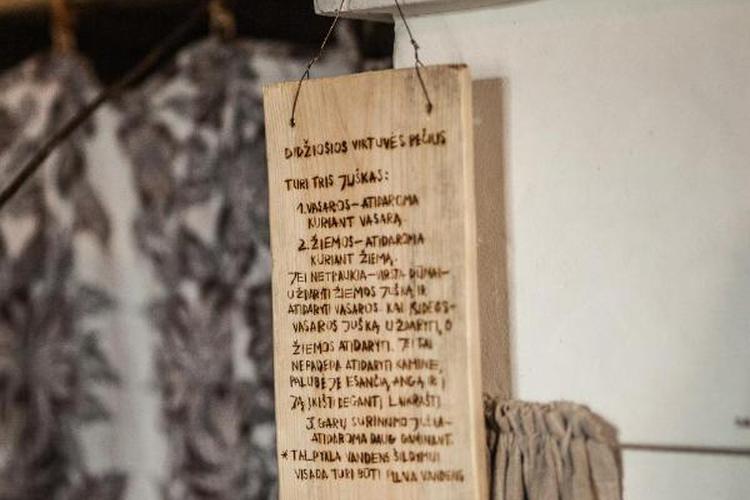 DIDŽIOSIOS VIRTUVĖS PEČIUS
TURI TRIS JUŠKAS:
1. VASAROS – ATIDAROMA
KURIANT VASARĄ.
2. ŽIEMOS – ATIDAROMA
KURIANT ŽIEMĄ.
JEI NETRAUKIA – VIRSTA DŪMAI –
UŽDARYTI ŽIEMOS JUŠKĄ IR
ATIDARYTI VASAROS. KAI ĮSIDEGS –
VASAROS JUŠKĄ UŽDARYTI, O
ŽIEMOS ATIDARYTI. JEI TAI
NEPADEDA ATIDARYTI KAMINE,
PALUBĖJE ESANČIĄ ANGĄ IR Į
JĄ ĮKIŠTI DEGANTĮ LAIKRAŠTĮ.
3. GARŲ SURINKIMO JUŠKA –
ATIDAROMA DAUG GAMINANT.
* TALPYKLA VANDENS ŠILDYMUI
VISADA TURI BŪTI PILNA VANDENS